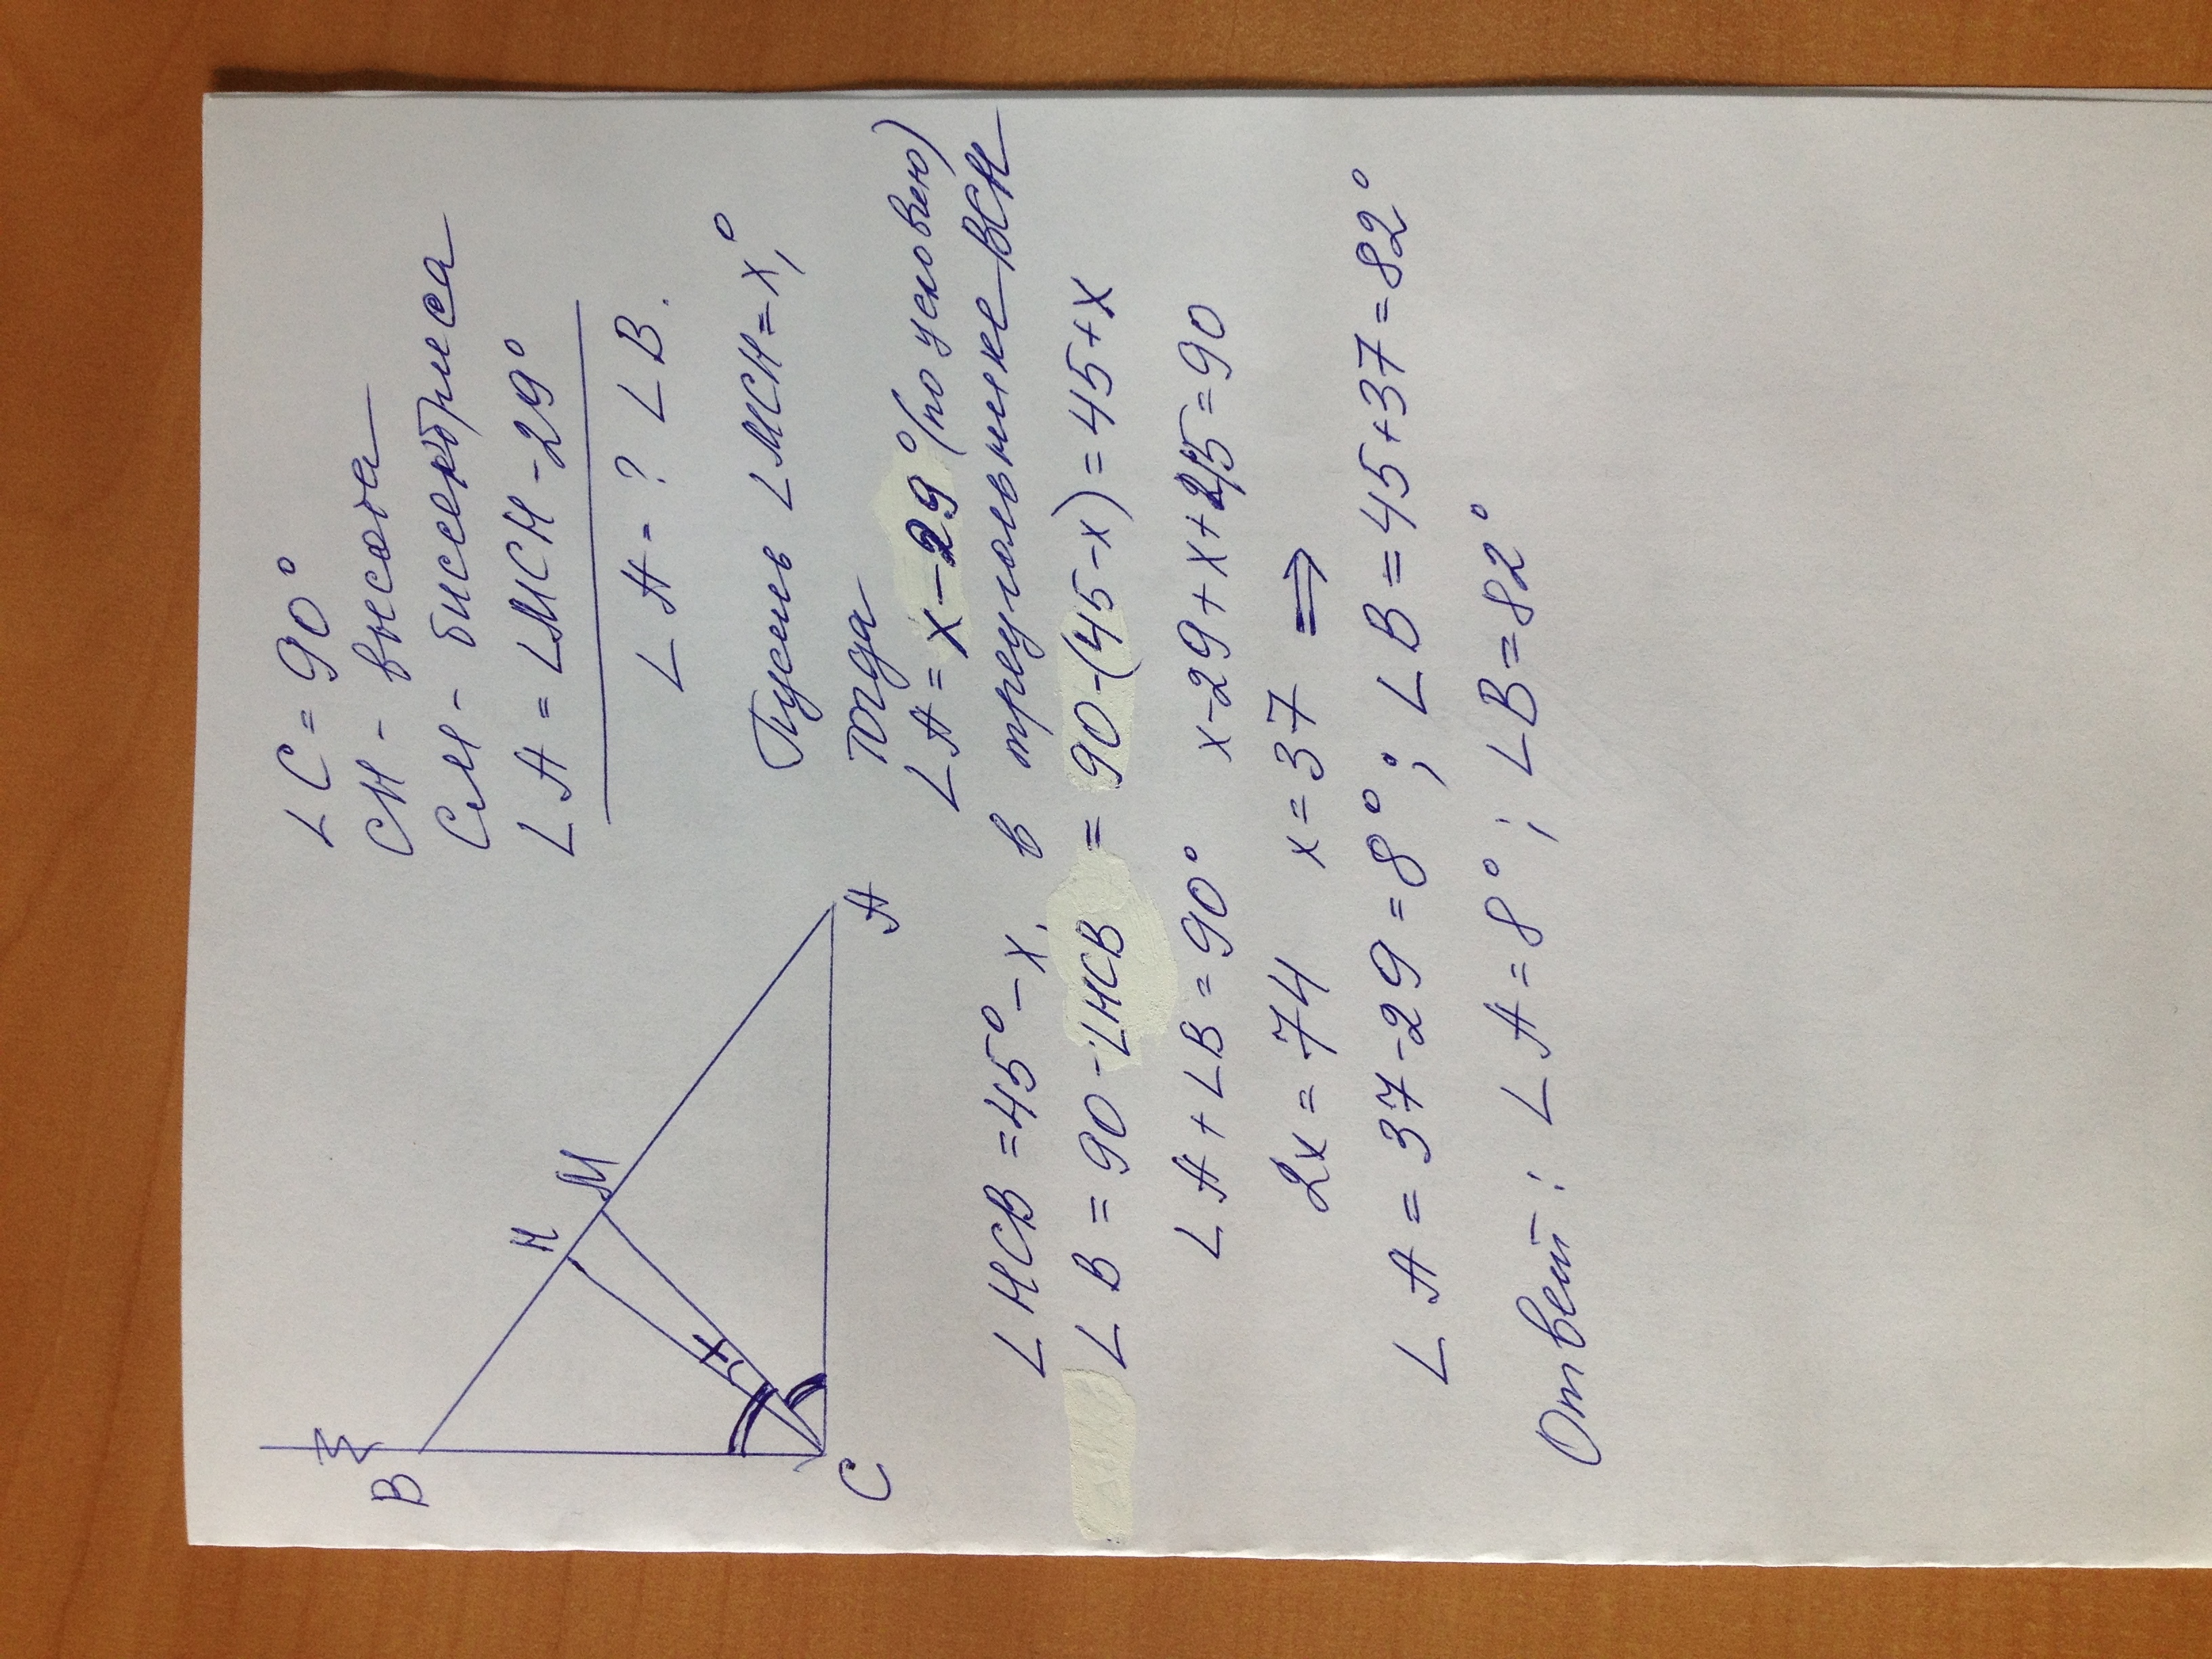 ∠C = 90°
CH - высота
CM - биссектриса
∠A = ∠MCH - 29°
∠A - ? ∠B.
B
H
M
C
A
Пусть ∠MCH = x,°
тогда
∠A = x - 29° (по условию)
∠HCB = 45° - x, в треугольнике BCH
∠B = 90 - ∠HCB = 90 - (45 - x) = 45 + x
∠A + ∠B = 90° x - 29 + x + 45 = 90
2x = 74 x = 37 ⇒
∠A = 37 - 29 = 8°; ∠B = 45 + 37 = 82°
Ответ: ∠A = 8°; ∠B = 82°